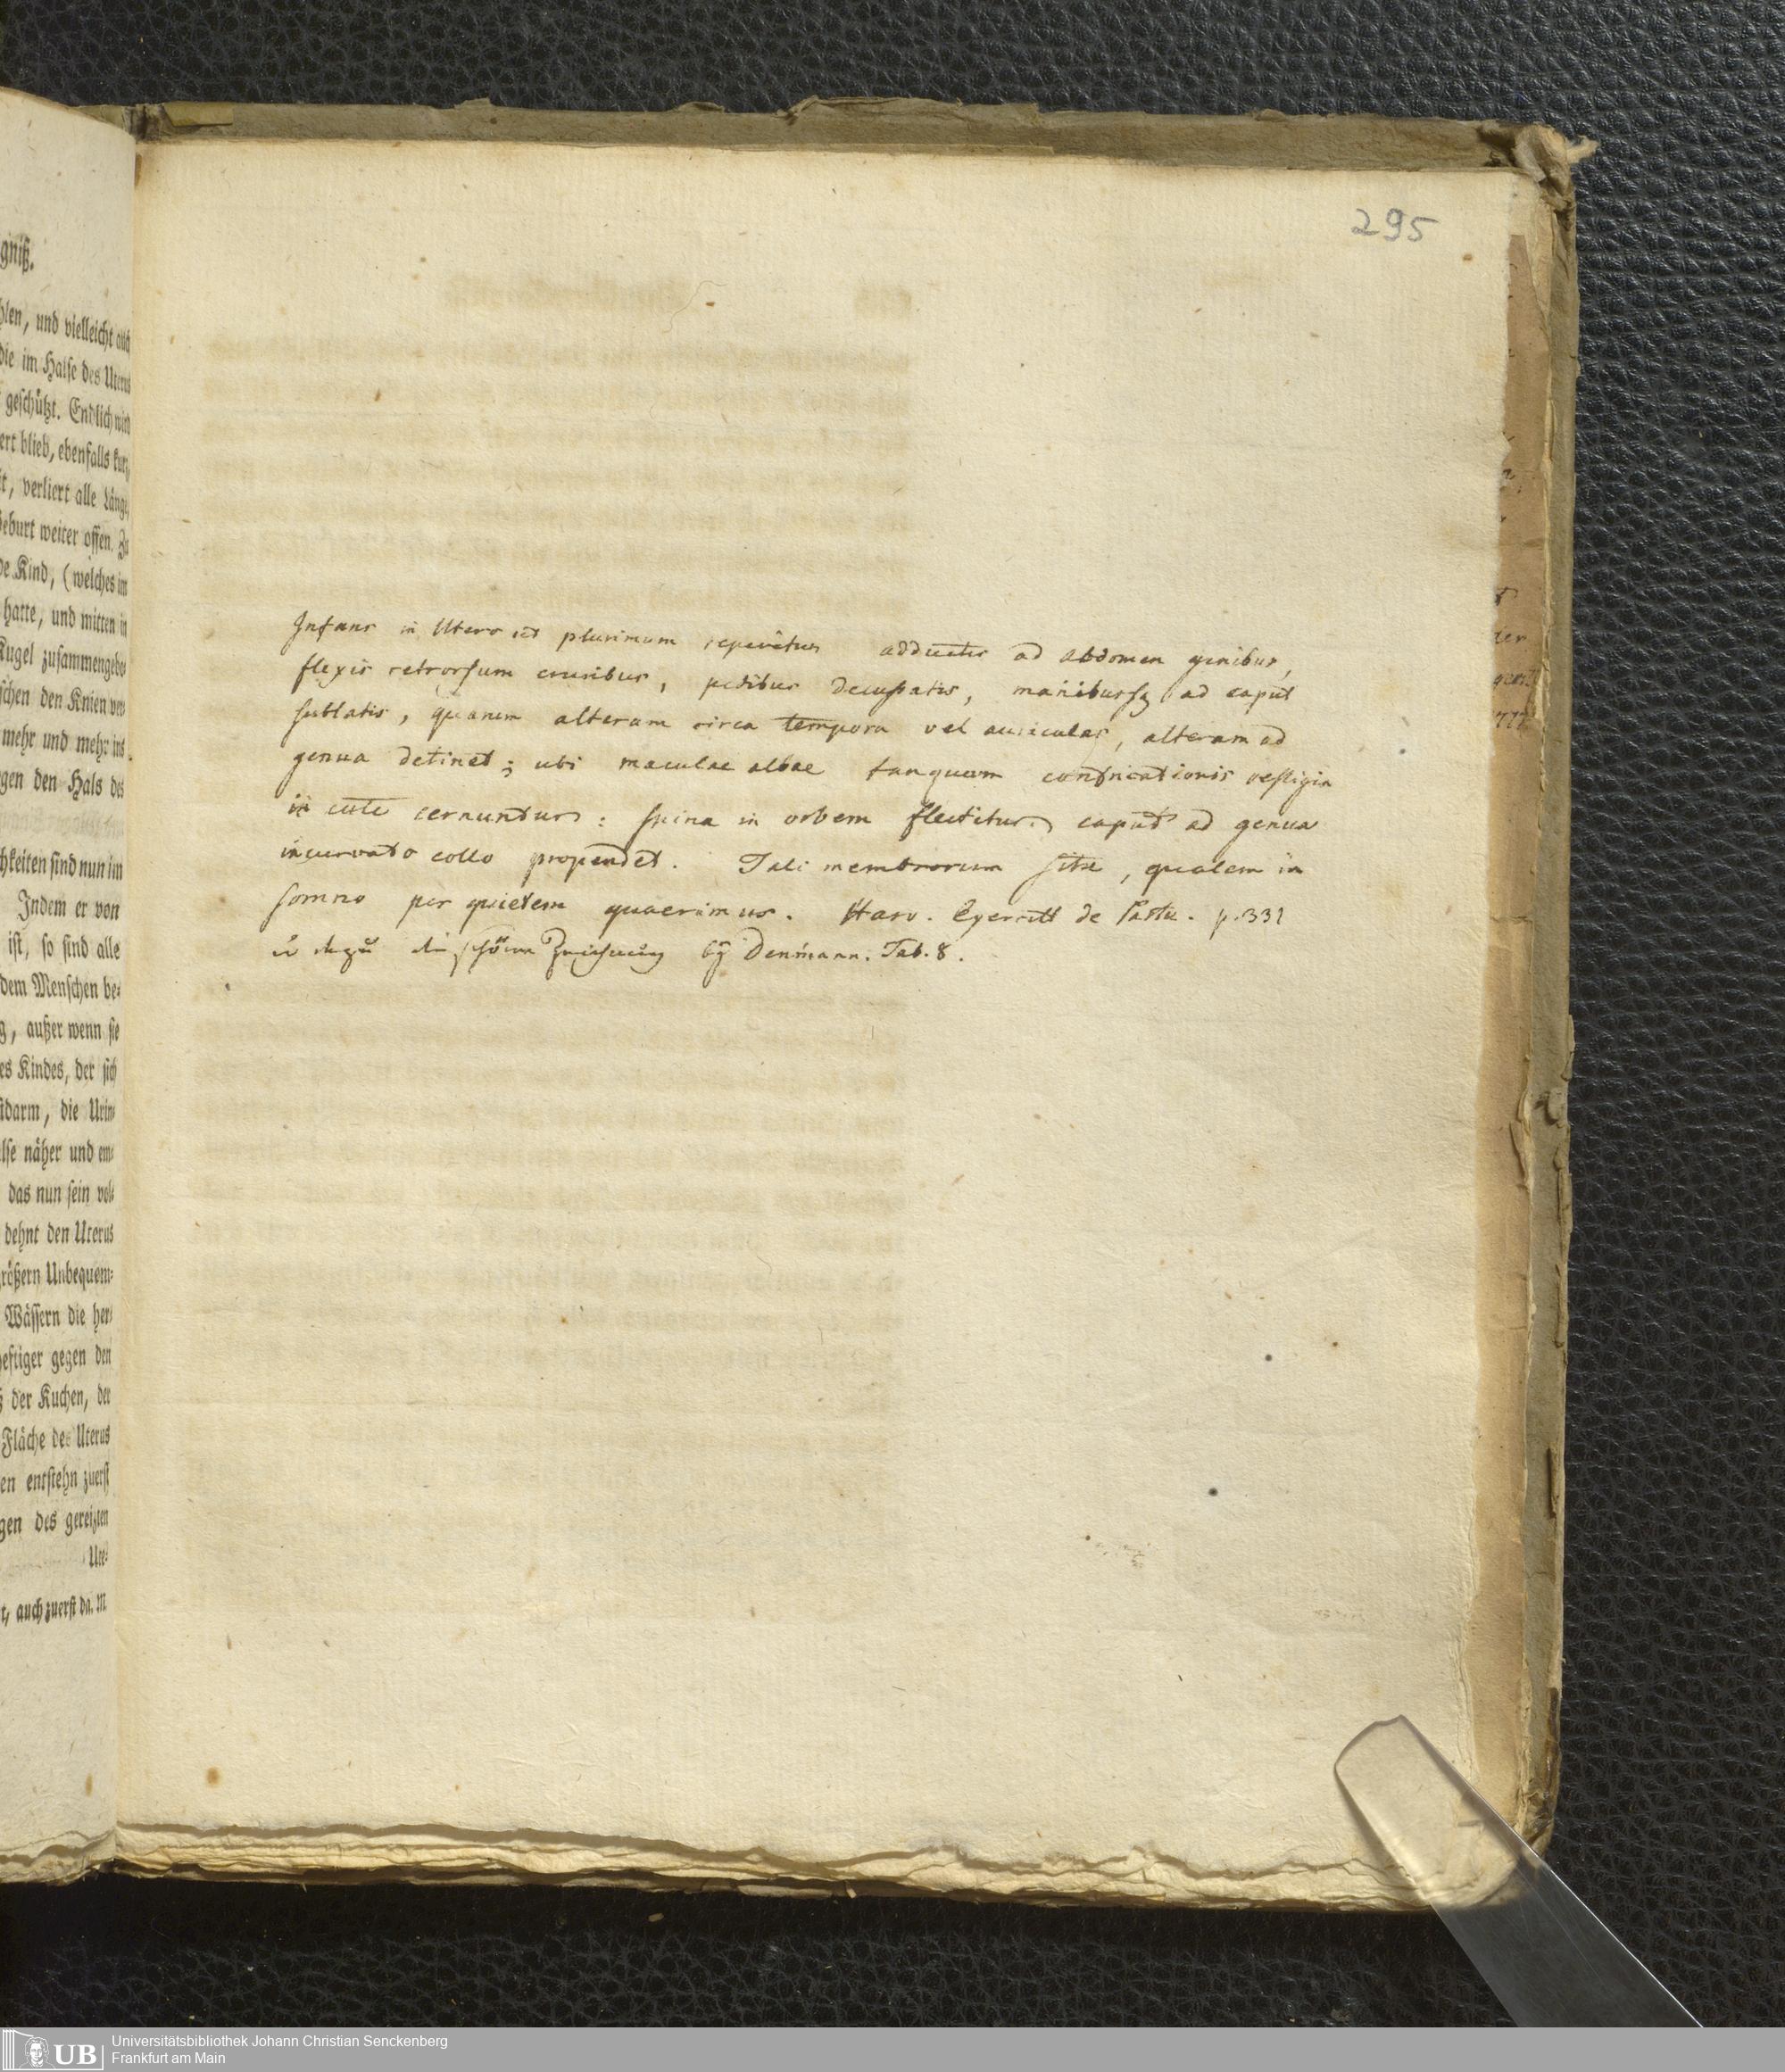 295
gniß.
hlen, und vielleicht auch
die im Halse des Uterus
geschützt. Endlich wird
ert blieb, ebenfalls kurz
it, verliert alle Länge,
Geburt weiter offen. Zu
de Kind, (welches im
hatte, und mitten in
Kugel zusammengebo
schen den Knien ver
mehr und mehr ins
gen den Hals des
chkeiten sind nun im
Indem er von
ist, so sind alle
dem Menschen be-
g, außer wenn sie
es Kindes, der sich
stdarm, die Urin-
lse näher und em-
das nun sein vol-
dehnt den Uterus
rößern Unbequem-
Wässern die her-
heftiger gegen den
ß der Kuchen, der
Fläche des Uterus
en entstehn zuerst
gen des gereizten
Ute-
t, auch zuerst da. M
Infans in Utero ut plurimum reperitur adductis ad abdomen genibus,
flexis retrorsum cruribus, pedibus decussatis, manibusq ad caput
sublatis, quarum alteram circa tempora vel auriculas, alteram ad
genua detinet; ubi maculae albae tanquam confricationis vestigia
in cute cernuntur: spina in orbem flectitur, caput ad genua
incurvato collo propendet. Tali membrorum situ, qualem in
somno per quietem quaerimus. Harv. Exercitt de Partu. p. 331
u dazu die schöne Zeichnung bey Denmann. Tab. 8.